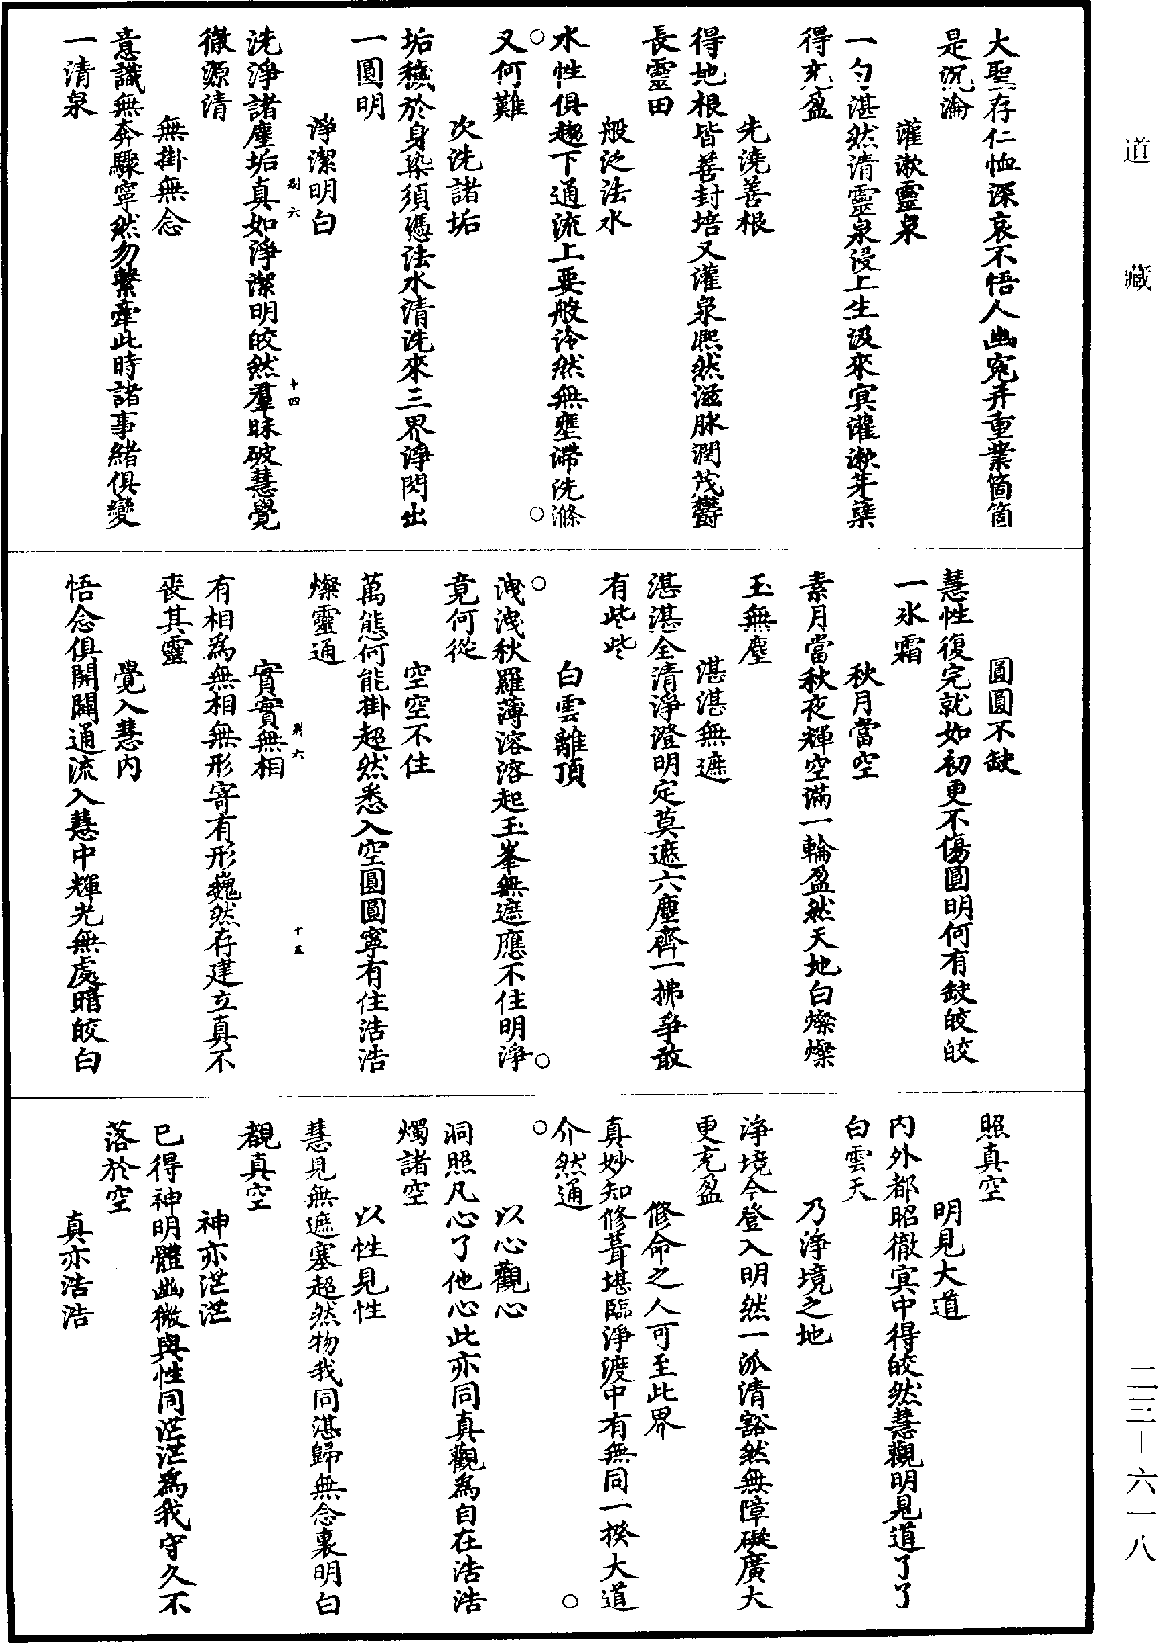 大聖存仁恤深哀不悟人幽冤并重業箇箇
是沉淪
灌漱靈泉
一勺湛然清靈泉浸上生汲來寘灌漱芽蘖
得充盈
先澆善根
得地根皆善封培又灌泉熙然滋脉潤茂鬱
長靈田
般泛法水
水性俱趨下通流上要般泠然無壅滯洗滌
又何難
次洗諸垢
垢穢於身染須憑法水清洗來三界淨閃出
一圓明
淨潔明白
洗淨諸塵垢真如淨潔明皎然羣昧破慧覺
徹源清
無掛無念
意識無奔驟寧然勿繫牽此時諸事緒俱變
一清泉
圓圓不缺
慧性復完就如初更不傷圓明何有缺皎皎
一氷霜
秋月當空
素月當秋夜輝空滿一輪盈然天地白燦燦
玉無塵
湛湛無遮
湛湛全清淨澄明定莫遮六塵齊一拂爭敢
有些些
白雲離頂
洩洩秋羅薄溶溶起玉峯無遮應不住明淨
竟何從
空空不住
萬態何能掛超然悉入空圓圓寧有住浩浩
燦靈通
實實無相
有相爲無相無形寄有形巍然存建立真不
喪其靈
覺入慧內
悟念俱開闢通流入慧中輝光無處暗皎白
照真空
明見大道
內外都昭徹寘中得皎然慧觀明見道了了
白雲天
乃淨境之地
淨境今登入明然一派清豁然無障礙廣大
更充盈
修命之人可至此界
真妙知修葺堪臨淨渡中有無同一揆大道
介然通
以心觀心
洞照凡心了他心此亦同真觀爲自在浩浩
燭諸空
以性見性
慧見無遮塞超然物我同湛歸無念裏明白
覩真空
神亦茫茫
已得神明體幽微與性同茫茫爲我守久不
落於空
真亦浩浩
道藏
二三—六一八